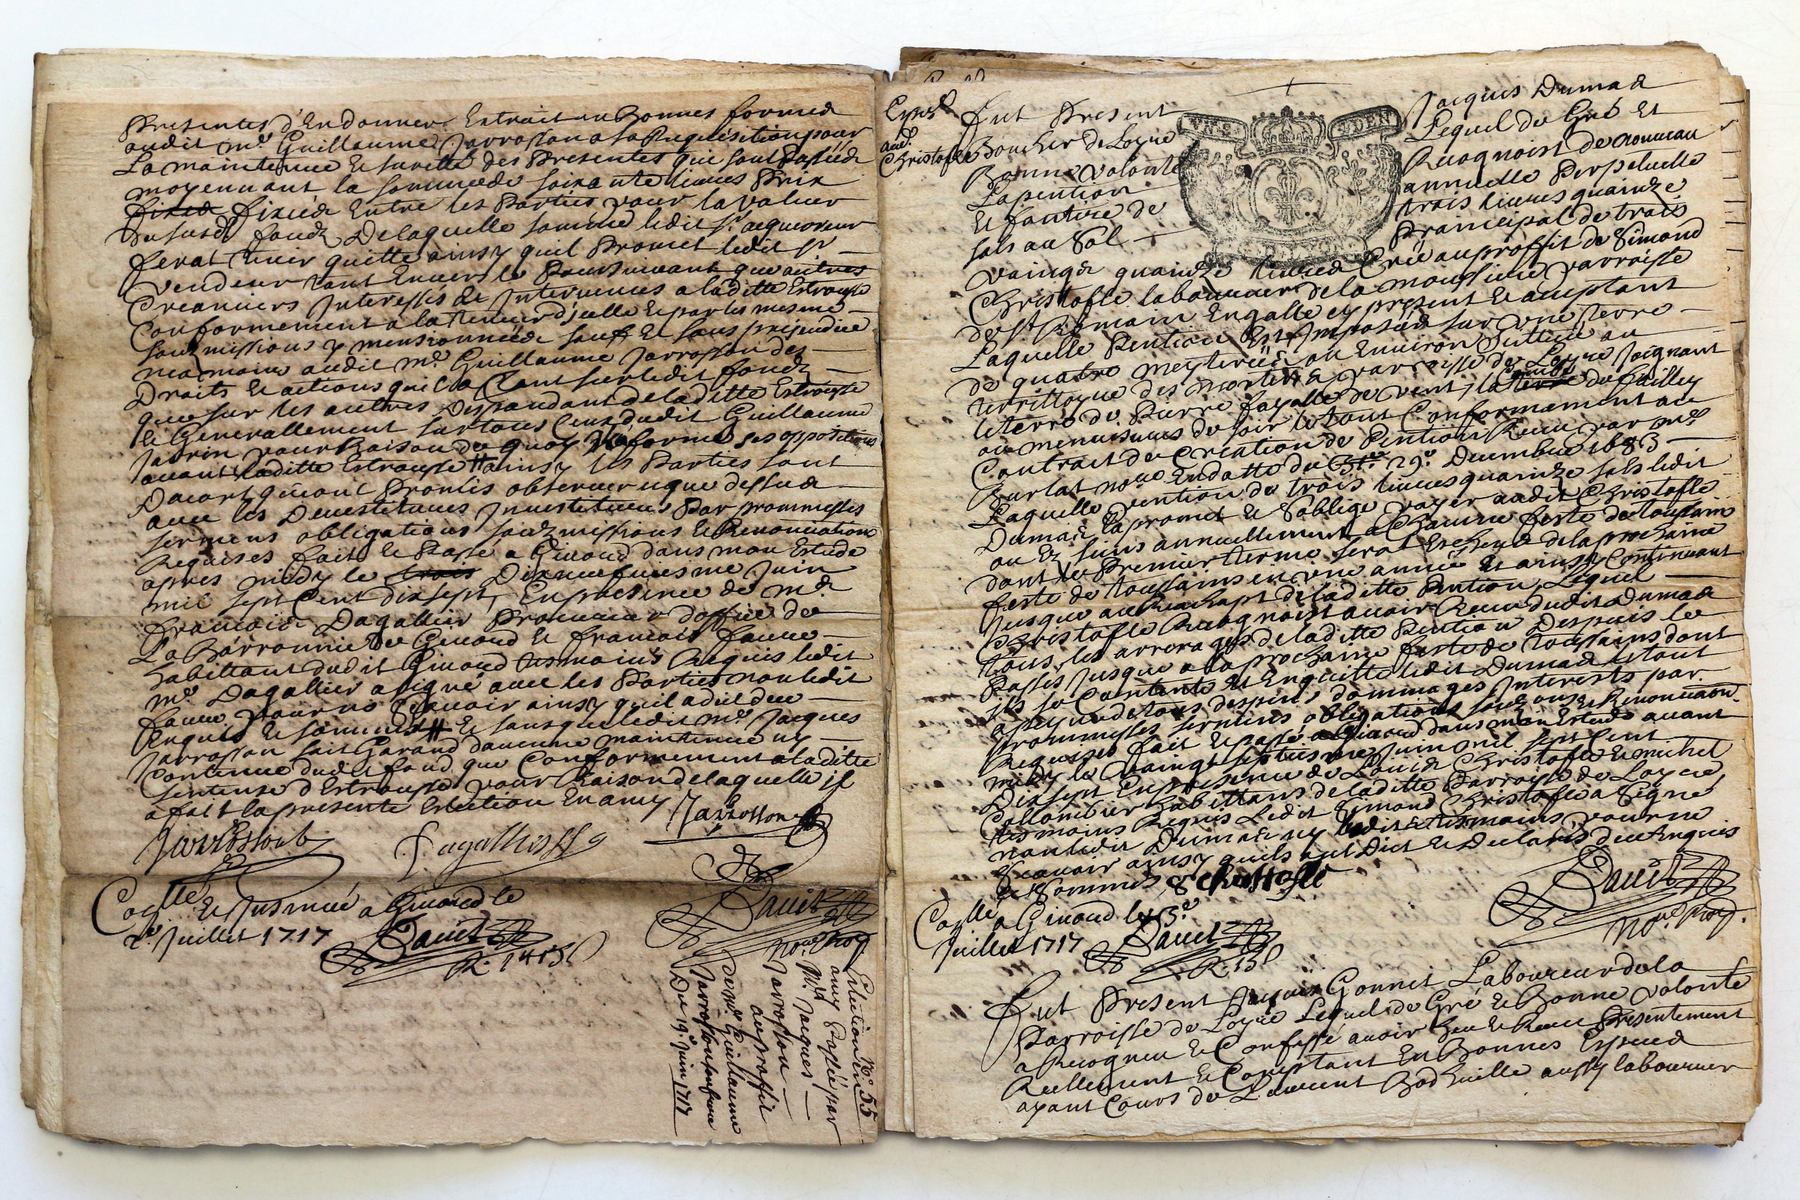 Presentes d'En donner Extrait en Bonnes formes
audit mr. Guillaume Jarrosson a sa Requisition pour
La maintenue Et suretté des Presentes qui sont Passées
moyennant la somme de soixante livres Prix
fixée Entre les Parties pour la valeur
du susdt fondz De laquelle somme ledit sr. acquereur
ferat tenir quitte ainsy quil Promet ledit sr
Vendeur tant Envers le Poursuivant que autres
Creanciers Interessés Et Intervenus a laditte Estrousse
Conformement a la Teneur d'icelle Et par les mesme
soubmissions y mensionnées sauf Et sans prejudice
neanmoins audit mr. Guillaume Jarrosson des
Droits Et actions quil a tant sur ledit fondz
que sur les autres Dependant de laditte Estrousse
Et Generallement sur tous Ceux dudit Guillaume
pour Raison de quoy Il a formé ses oppositions
avant laditte Estrousse # ainsy les Parties sont
D'acort qu'ont Promis observer ce que dessus
avec les Devestitures Investitures Par prommesses
sermens obligations soubzmissions Et Renonciations
Requises fait Et Passé a Ginoud dans mon Estude
apres midy le Dixneufviesme Juin
mil sept Cent dix sept, En presence de mr.
françois Dagallier Procureur d'office de
La Barronnie de Ginoud Et francois faure
habittant dudit Ginoud tesmoins Requis ledit
mr. Dagallier a signé avec les Parties non ledit
faure pour ne scavoir ainsy quil a dit de ce
Enquis Et sommé # Et sans que ledit mr. Jacques
Jarrosson soit Garand d'aucune maintenue ny
Contenue dudit fond que Conformement a laditte
sentense d'Estrousse pour Raison de laquelle il
a fait la presente Election En amy Jarrosson
Jarrosson Dagallier
Daucet
Nore Roy
Collé Et Insinué a Ginoud le
2e. Juillet 1717
Daucet
R.
No. 55
Election En
amy Passée par
Mr. Jacques
Jarrosson
au proffit
de mr. Guillaume
Jarrosson son frere
Du 19e. Juin 1717
Exped
aud.
Christofle
fut Present Jacques Dumas
Boucher de Loyse Lequel de Gré Et
Bonne volonté Recognoist de nouveau
La pention annuelle Perpetuelle
Et fontire de trois livres quainze
sols au Sol Prancipal de trois
vaingt quainze livres Créé au proffit de Simond
Christofle laboureur de la mousliere parroisse
de st. Romain En galle cy présent Et acceptant
Laquelle Pention Est Imposée sur une terre
de quatre meyterées ou Environ Scituée au
territtoyre des parroisse de Loyse Joignant
la terre de Pierre fayolle de vent,
de soir le tout Conformement au
Contrait de Creation de Pention Receu par mr.
Burlat nore. En datte du 29e. Decembre 1683
Laquelle pention de trois livres quainze sols ledit
Dumas La promet Et s'oblige payer audit Christofle
ou Ez siens annuellement a Chacune feste de toussaint
dont le Premier terme serat Escheu de la prochaine
feste de toussains en une année Et ainsy Continuant
Jusque au Rachapt de laditte Pention, Lequel
Christofle Recognoist avoir Receu dudit Dumas
tous les arrerages de laditte Pention Despuis le
Passé Jusque a la prochaine feste de toussains dont
Il se Contante Et En quitte ledit Dumas Et tout
a peyne de tous despens dommages Interests par
prommesses sermens obligations soubzons Et Renonciations
Requises fait Et passé a Ginoud dans mon Estude avant
midy le vaingt septiesme Juin mil sept Cent
Dix sept En presence de Louis Christofle Et michel
Collombier habittans de laditte Parroisse de Loyse
tesmoins Requis Ledit Simond Christofle a Signé
non ledit Dumas ny lesdits tesmoins pour ne
scavoir ainsy quils ont Dict Et Declaré de ce Enquis
Et Sommés S Christofle
Daucet
Nore Roy.
Collé a Ginoud le 3e
Juillet 1717 Daucet
R. 13s
fut Present Jacques Gonnet Laboureur de la
Parroisse de Loyse Lequel de Gré Et Bonne volonté
a Recogneu Et Confessé avoir Heu Et Receu Presentement
Reellement Et Comptant En Bonnes Especes
ayant Cours de Laurent aussy laboureur